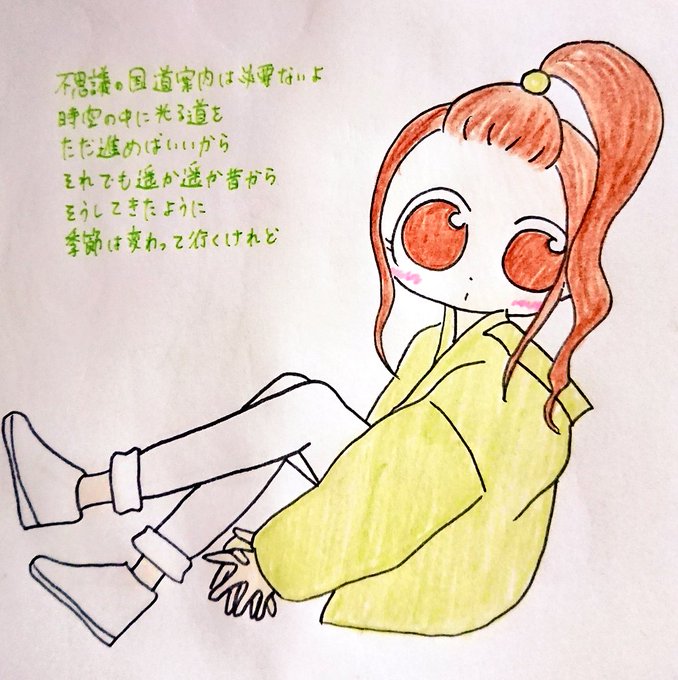 不思議の国 道案内は必要ないよ
時空の中に光る道を
ただ進めばいいから
それでも遥か遥か昔から
そうしてきたように
季節は変わって行くけれど